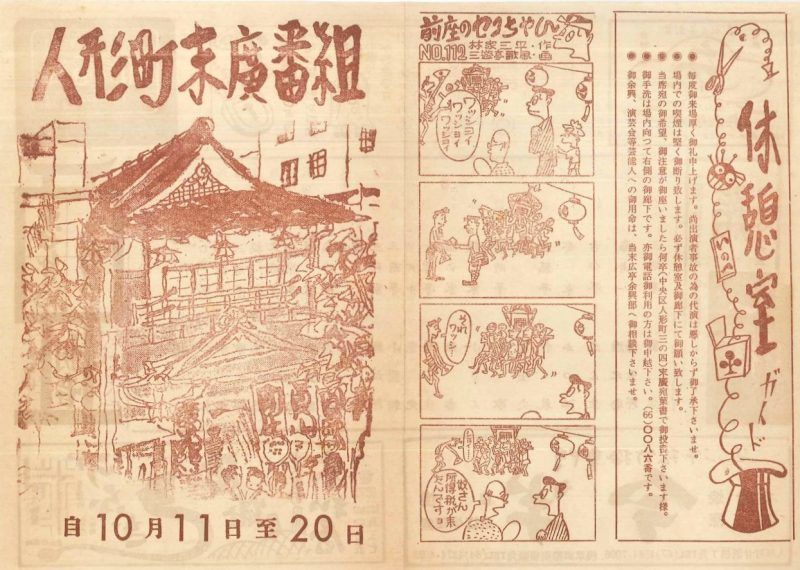 人形町末廣番組
自10月11日至20日
前座のセコちゃん
NO.112
林家三平・作
三遊亭歌風・画
ワッショイ
ワッショイ
それ
ワッショ
奴さん
所得税が未
だんですョ
休憩室ガイド
● 毎度御来場厚く御礼申上げます。尚出演者事故の為の代演は悪しからず御了承下さいませ。
● 場内での喫煙は堅く御断り致します。必ず休憩室及御廊下にて御願い致します。
● 当席宛の御希望、御注意が御座いましたら何卒(中央区人形町三の四)末廣宛葉書で御投書下さいます様。
● 御手洗は場内向つて右側の御廊下です。亦御電話御利用の方は御申越下さい。(66)〇〇八六番です。
● 御余興、演芸会等芸能人への御用命は、当末広亭余興部へ御相談下さいませ。